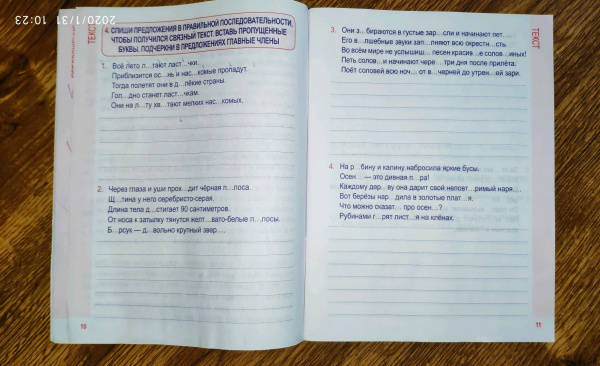 2020/1/31 10:23
ТЕКСТ
4. СПИШИ ПРЕДЛОЖЕНИЯ В ПРАВИЛЬНОЙ ПОСЛЕДОВАТЕЛЬНОСТИ,
ЧТОБЫ ПОЛУЧИЛСЯ СВЯЗНЫЙ ТЕКСТ. ВСТАВЬ ПРОПУЩЕННЫЕ
БУКВЫ. ПОДЧЕРКНИ В ПРЕДЛОЖЕНИЯХ ГЛАВНЫЕ ЧЛЕНЫ
1. Всё лето л...тают ласт...чки.
Приблизится ос...нь и нас...комые пропадут.
Тогда полетят они в д...лёкие страны.
Гол...дно станет ласт...чкам.
Они на л...ту хв...тают мелких нас...комых.
2. Через глаза и уши прох...дит чёрная п...лоса.
Щ...тина у него серебристо-серая.
Длина тела д...стигает 90 сантиметров.
От носа к затылку тянутся желт...вато-белые п...лосы.
Б...рсук — д...вольно крупный звер....
10
3. Они з...бираются в густые зар...сли и начинают пет....
Его в...лшебные звуки зап...лняют всю окрестн...сть.
Во всём мире не услышиш... песен красив...е солов...иных!
Петь солов...и начинают чере... три дня после прилёта.
Поёт соловей всю ноч... от в...черней до утрен...ей зари.
4. На р...бину и калину набросила яркие бусы.
Осен... — это дивная п...ра!
Каждому дер...ву она дарит свой неповт...римый наря....
Вот берёзы нар...дила в золотые плат...я.
Что можно сказат... про осен...?
Рубинами г...рят лист...я на клёнах.
ТЕКСТ
11